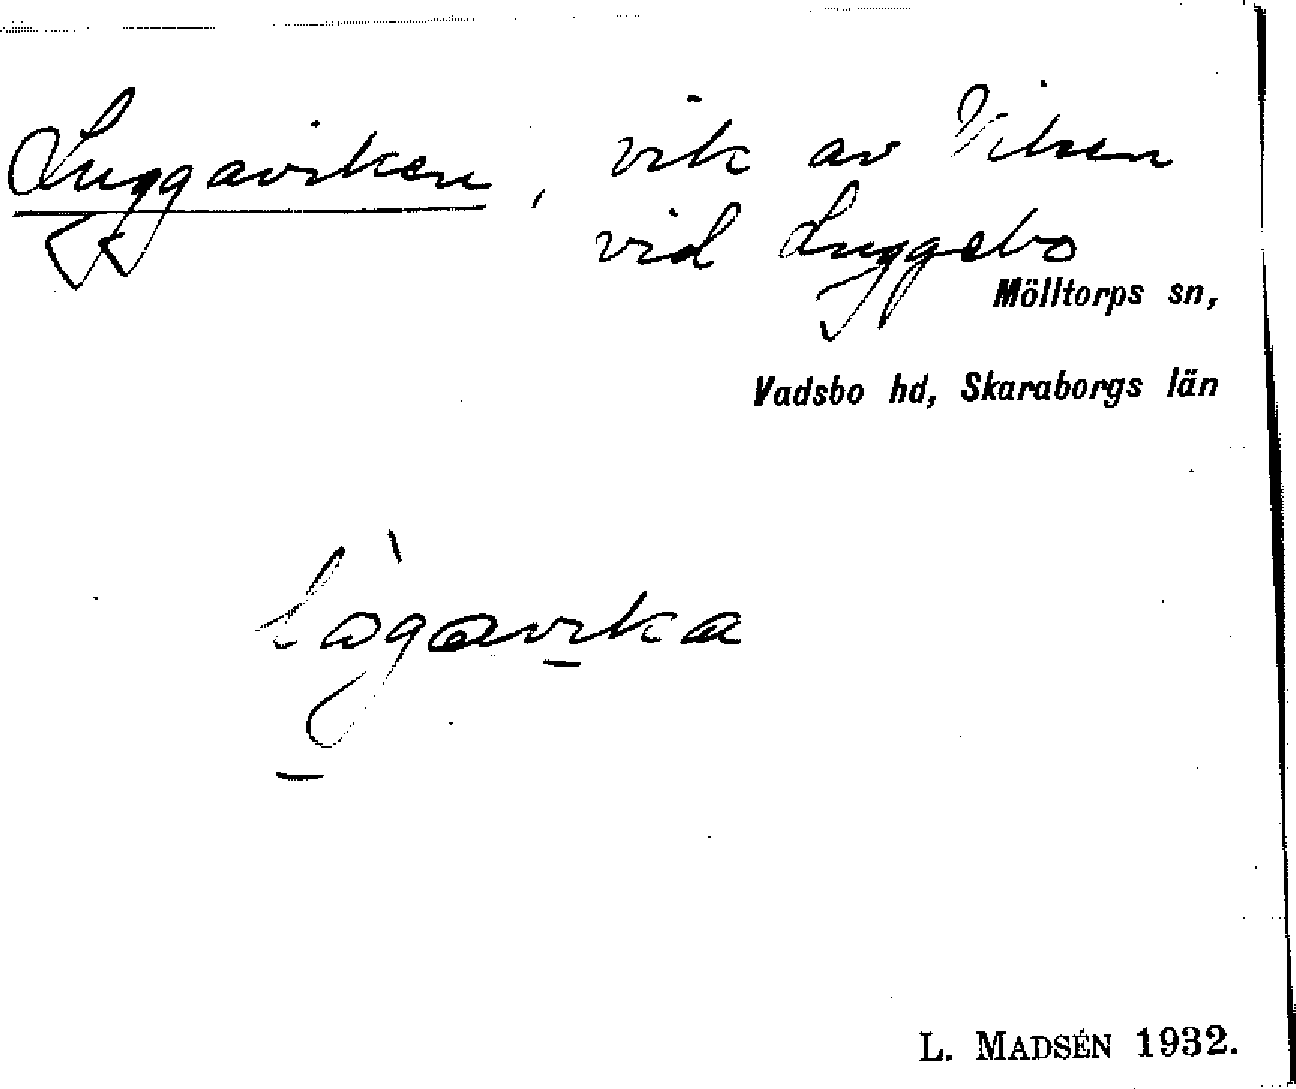 Luggaviken, vik av Viken
vid Luggebo
Mölltorps sn,
Vadsbo hd, Skaraborgs län
L. MADSÉN 1932.